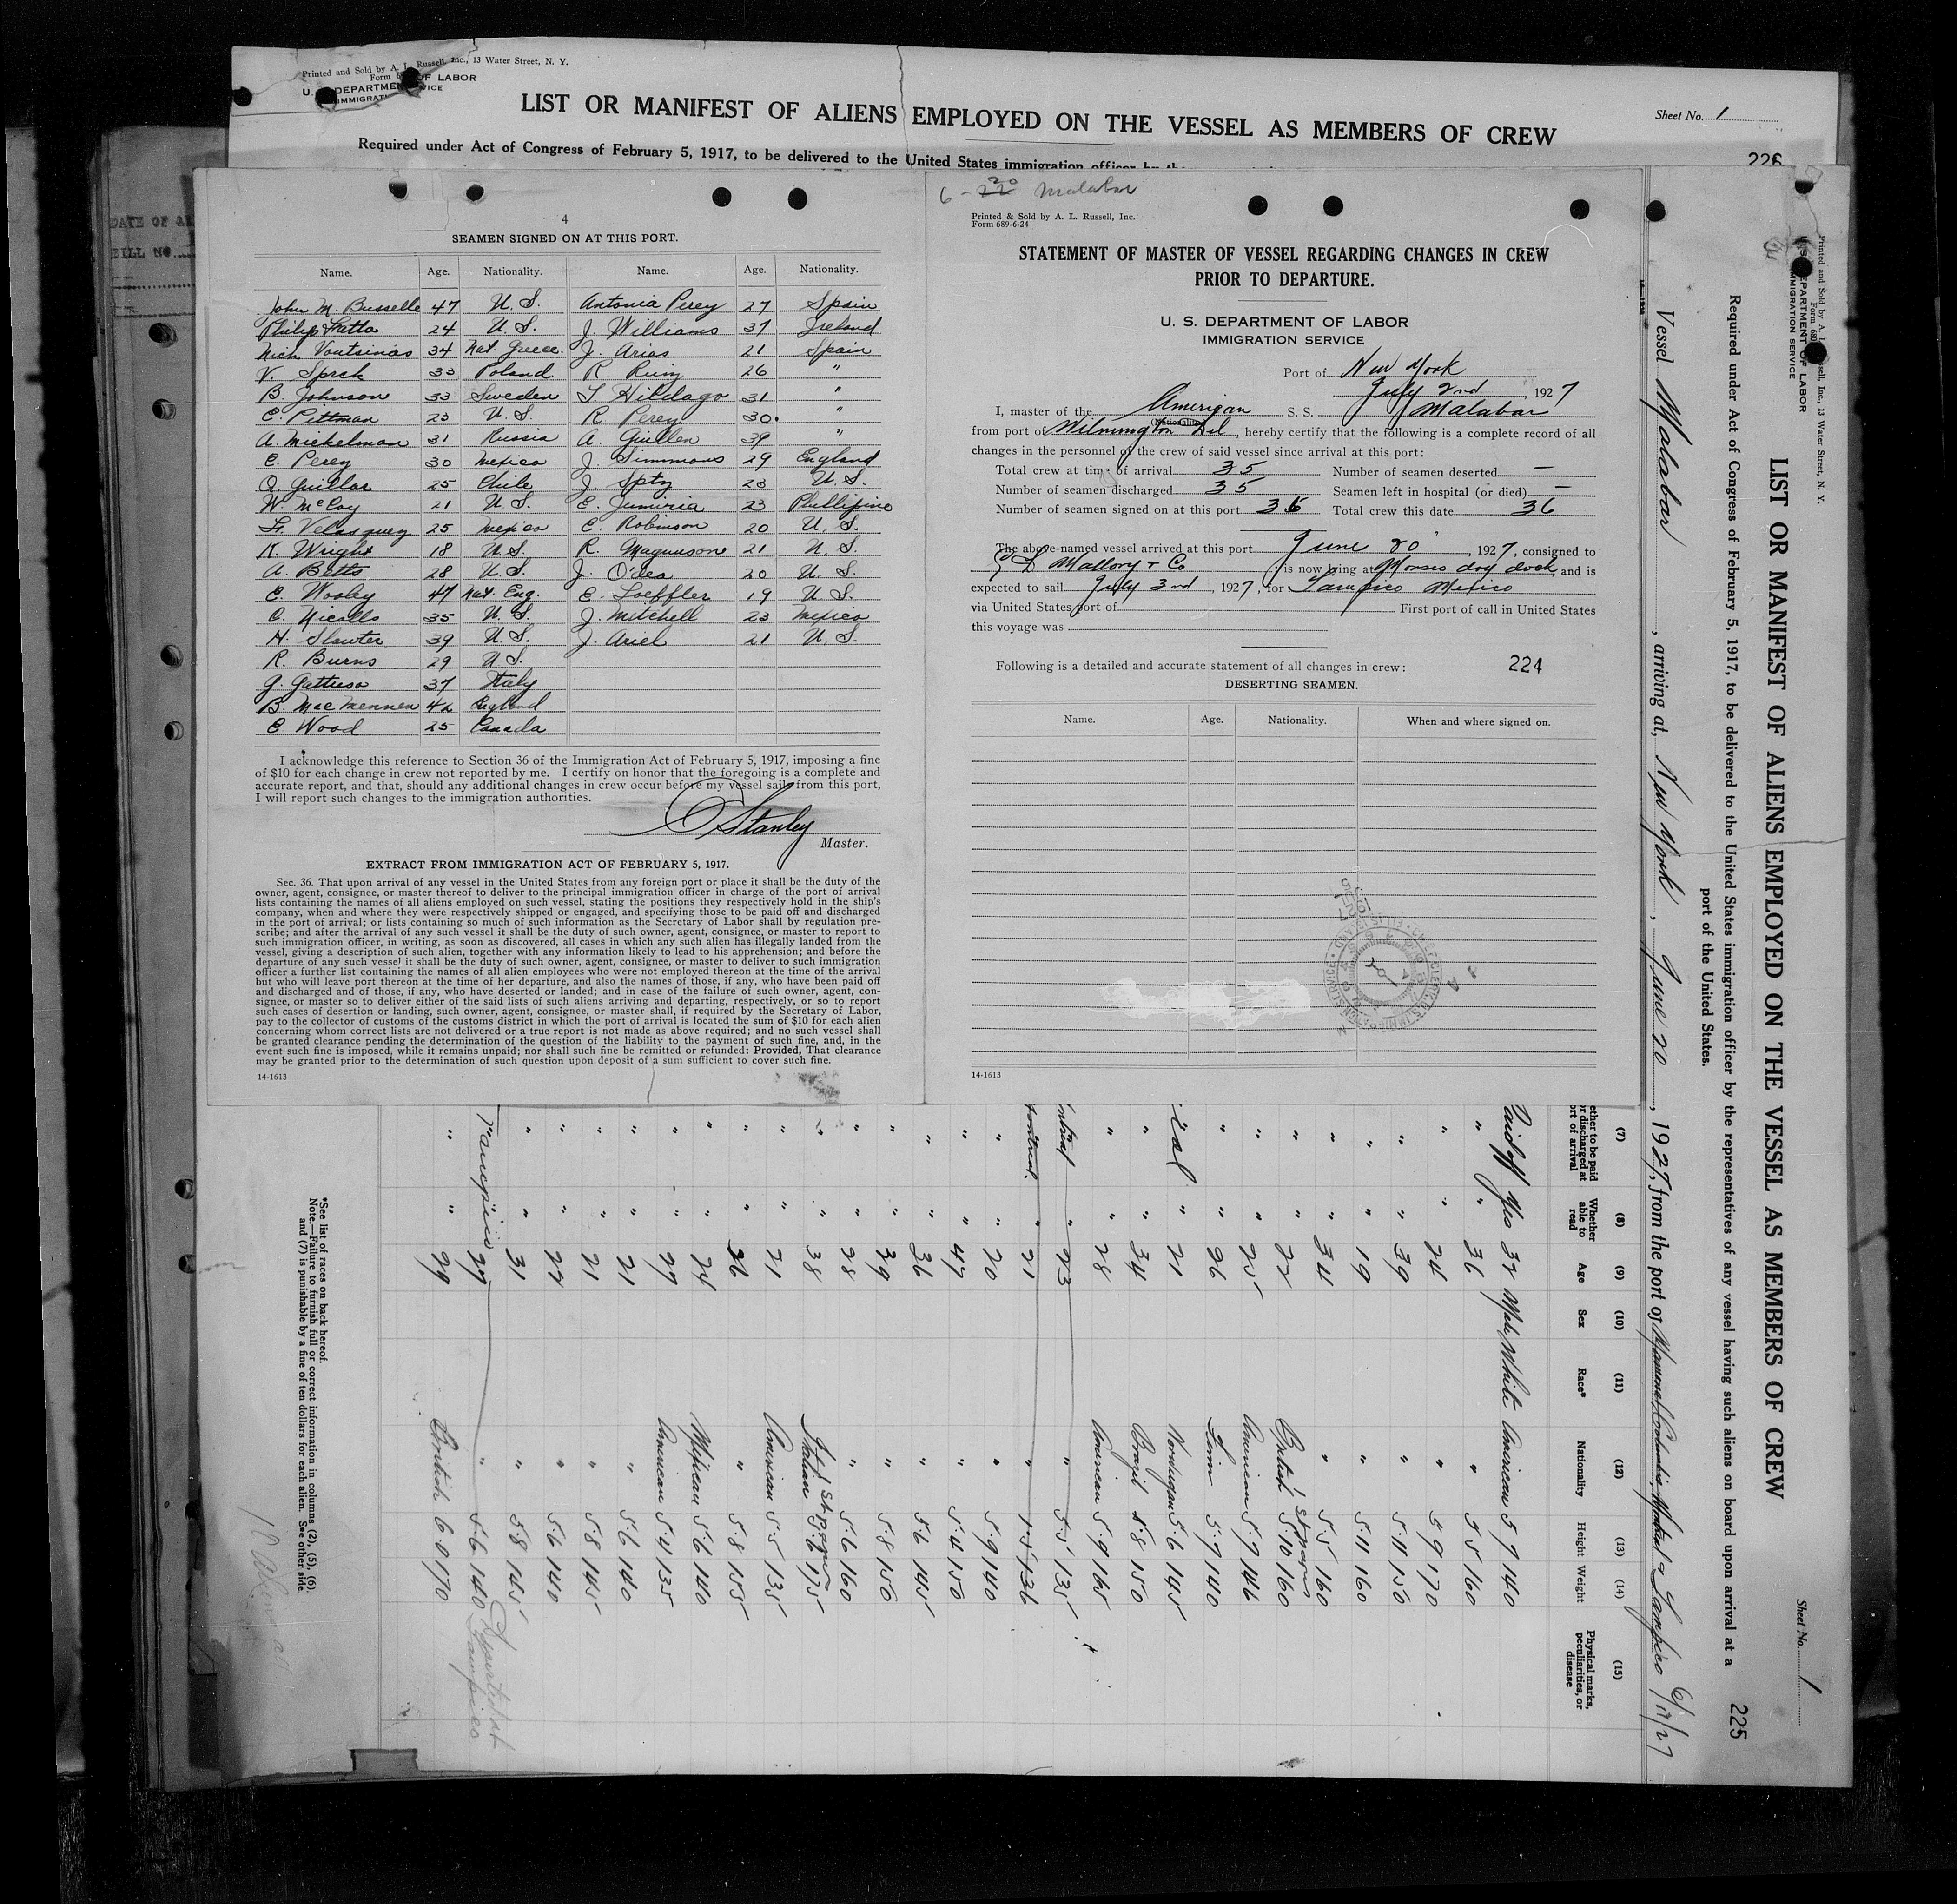 Printed and Sold by A. L. Russell, Inc., 13 Water Street, N. Y.
Form
U. S. DEPARTMENT OF LABOR
IMMIGRATION SERVICE
LIST OR MANIFEST OF ALIENS EMPLOYED ON THE VESSEL AS MEMBERS OF CREW
Sheet No. 1
Required under Act of Congress of February 5, 1917, to be delivered to the United States immigration officer by the
226
DATE OF
BILL NO.
4
SEAMEN SIGNED ON AT THIS PORT.
Name. Age. Nationality. Name. Age. Nationality.
John M. Busselle 47 U. S. Antonia Perey 27 Spain
Philip Fatta 24 U. S. J. Williams 37 Ireland
Nick Voutsinas 34 Nat. Greece. J. Arias 21 Spain
V. Sprek 33 Poland R. Ruiz 26 "
B. Johnson 33 Sweden T Hildago 31 "
E. Pittman 23 U. S. R. Perey 30 "
A. Mickelman 31 Russia A. Guillen 39 "
E. Perey 30 Mexico J. Simmons 29 England
O. Guillar 25 Chile J. Spty 23 U. S.
W. McCoy 21 U. S. E. Jumiria 23 Phillipino
Fr. Velasquey 25 Mexico E. Robinson 20 U. S.
K. Wright 18 U. S. R. Magnusone 21 U. S.
A. Betts 28 U. S. J. O'dea 20 U. S.
E. Wooley 47 Nat. Eng. E. Loeffler 19 U. S.
C. Nicolls 35 U. S. J. Mitchell 23 Mexico
H. Slawter 39 U. S. J. Ariel 21 U. S.
R. Burns 29 U S.
G. Gattuso 37 Italy
B. MacMennen 42 England
E Wood 25 Canada
I acknowledge this reference to Section 36 of the Immigration Act of February 5, 1917, imposing a fine
of $10 for each change in crew not reported by me. I certify on honor that the foregoing is a complete and
accurate report, and that, should any additional changes in crew occur before my vessel sails from this port,
I will report such changes to the immigration authorities.
C Stanley
Master.
EXTRACT FROM IMMIGRATION ACT OF FEBRUARY 5, 1917.
Sec. 36. That upon arrival of any vessel in the United States from any foreign port or place it shall be the duty of the
owner, agent, consignee, or master thereof to deliver to the principal immigration officer in charge of the port of arrival
lists containing the names of all aliens employed on such vessel, stating the positions they respectively hold in the ship's
company, when and where they were respectively shipped or engaged, and specifying those to be paid off and discharged
in the port of arrival; or lists containing so much of such information as the Secretary of Labor shall by regulation pre-
scribe; and after the arrival of any such vessel it shall be the duty of such owner, agent, consignee, or master to report to
such immigration officer, in writing, as soon as discovered, all cases in which any such alien has illegally landed from the
vessel, giving a description of such alien, together with any information likely to lead to his apprehension; and before the
departure of any such vessel it shall be the duty of such owner, agent, consignee, or master to deliver to such immigration
officer a further list containing the names of all alien employees who were not employed thereon at the time of the arrival
but who will leave port thereon at the time of her departure, and also the names of those, if any, who have been paid off
and discharged and of those, if any, who have deserted or landed; and in case of the failure of such owner, agent, con-
signee, or master so to deliver either of the said lists of such aliens arriving and departing, respectively, or so to report
such cases of desertion or landing, such owner, agent, consignee, or master shall, if required by the Secretary of Labor,
pay to the collector of customs of the customs district in which the port of arrival is located the sum of $10 for each alien
concerning whom correct lists are not delivered or a true report is not made as above required; and no such vessel shall
be granted clearance pending the determination of the question of the liability to the payment of such fine, and, in the
event such fine is imposed, while it remains unpaid; nor shall such fine be remitted or refunded: Provided, That clearance
may be granted prior to the determination of such question upon deposit of a sum sufficient to cover such fine.
14-1613
6-20 Malabar
Printed & Sold by A. L. Russell, Inc.
Form 689-6-24
STATEMENT OF MASTER OF VESSEL REGARDING CHANGES IN CREW
PRIOR TO DEPARTURE.
U. S. DEPARTMENT OF LABOR
IMMIGRATION SERVICE
Port of New York
July 2nd, 1927
I, master of the American S. S. Malabar
(Nationality)
from port of Wilmington Del, hereby certify that the following is a complete record of all
changes in the personnel of the crew of said vessel since arrival at this port:
Total crew at time of arrival 35 Number of seamen deserted —
Number of seamen discharged 35 Seamen left in hospital (or died) —
Number of seamen signed on at this port 36 Total crew this date 36
The above-named vessel arrived at this port June 20, 1927, consigned to
C D Mallory & Co is now lying at Morses dry dock, and is
expected to sail July 3rd, 1927, for Tampico Mexico
via United States port of First port of call in United States
this voyage was
Following is a detailed and accurate statement of all changes in crew: 224
DESERTING SEAMEN.
Name. Age. Nationality. When and where signed on.
14-1613
Printed and Sold by A. L. Russell, Inc., 13 Water Street, N. Y.
Form 680
U. S. DEPARTMENT OF LABOR
IMMIGRATION SERVICE
Sheet No. 1
LIST OR MANIFEST OF ALIENS EMPLOYED ON THE VESSEL AS MEMBERS OF CREW
225
Required under Act of Congress of February 5, 1917, to be delivered to the United States immigration officer by the representatives of any vessel having such aliens on board upon arrival at a
port of the United States.
Vessel Malabar, arriving at New York, June 20, 1927, from the port of Tampico 6/12/27
(7) (8) (9) (10) (11) (12) (13) (14) (15)
Whether to be paid or discharged at port of arrival Whether able to read Age Sex Race* Nationality Height Weight Physical marks, peculiarities, or disease
Paid off Yes 32 Male White American 5 7 140
" " 36 " 5 5 160
" " 24 " 5 9 170
" " 39 " 5 11 150
" " 19 " 5 11 160
" " 34 " 5 5 160
" " 22 British 5 10 160
" " 25 American 5 7 146
" " 26 5 7 140
" 21 Norwegian 5 6 145
" " 34 Brazil 5 8 150
" " 28 American 5 9 165
" 23 " 5 5 135
" 21 "
" " 20 " 5 9 140
" " 47 " 5 4 150
" " 36 " 5 6 145
" " 39 " 5 8 150
" " 28 " 5 6 160
" 38 Italian 5 6 175
" " 21 American 5 5 135
" " 26 " 5 8 155
" " 24 Mexican 5 6 140
" " 27 American 5 4 135
" " 21 " 5 6 140
" " 21 " 5 8 145
" " 22 " 5 6 140
" " 31 " 5 8 145
Tampico 27 " 5 6 140 Deserted at Tampico
" " 29 British 6 0 170
*See list of races on back hereof.
Note.—Failure to furnish full or correct information in columns (2), (5), (6)
and (7) is punishable by a fine of ten dollars for each alien. See other side.